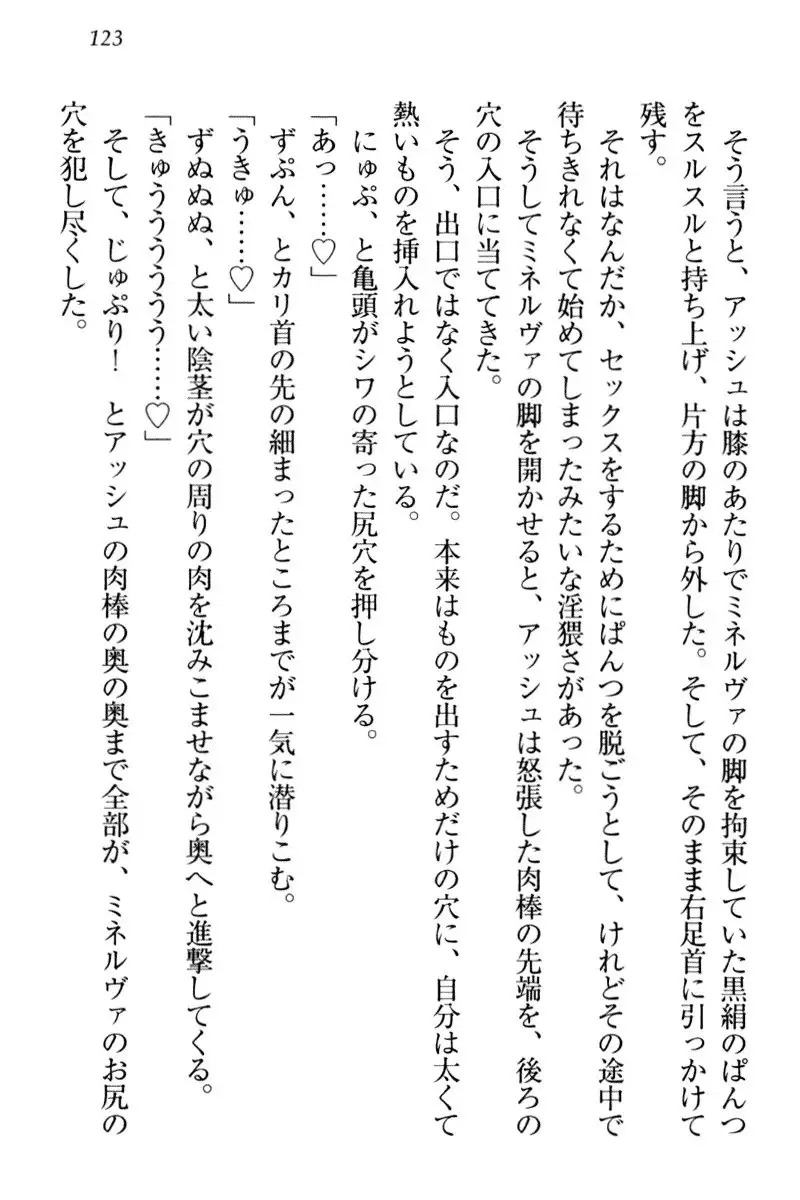 123
そう言うと、アッシュは膝のあたりでミネルヴァの脚を拘束していた黒絹のぱんつ
をスルスルと持ち上げ、片方の脚から外した。そして、そのまま右足首に引っかけて
残す。
それはなんだか、セックスをするためにぱんつを脱ごうとして、けれどその途中で
待ちきれなくて始めてしまったみたいな淫猥さがあった。
そうしてミネルヴァの脚を開かせると、アッシュは怒張した肉棒の先端を、後ろの
穴の入口に当ててきた。
そう、出口ではなく入口なのだ。本来はものを出すためだけの穴に、自分は太くて
熱いものを挿入れようとしている。
にゅぷ、と亀頭がシワの寄った尻穴を押し分ける。
「あっ……♡」
ずぷん、とカリ首の先の細まったところまでが一気に潜りこむ。
「うきゅ……♡」
ずぬぬぬ、と太い陰茎が穴の周りの肉を沈みこませながら奥へと進撃してくる。
「きゅうううううう……♡」
そして、じゅぷり！　とアッシュの肉棒の奥の奥まで全部が、ミネルヴァのお尻の
穴を犯し尽くした。